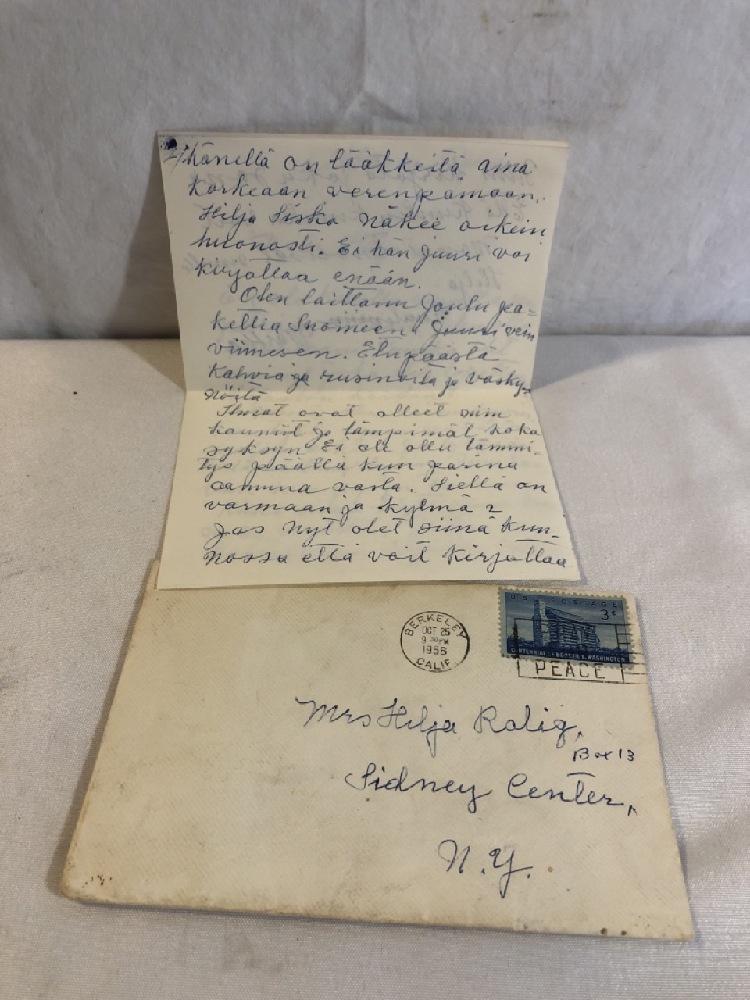 2/ hänellä on lääkkeitä aina
korkeaan verenpainaan.
Hilja Siska näkee oikein
huonosti. Ei hän juuri voi
kirjottaa enään.
Olen laittanu Joulu pa=
kettia Suomeen. Juuri vein
viimesen. Etupäästä
Kahvia ja rusinoita ja väsky=
nöitä
Ilmat ovat olleet niin
kauniit ja lämpimät koko
syksyn Ei ole ollu lämmi-
tys päällä kun parina
aamuna vasta. Siellä on
varmaan ja kylmä?
Jos Nyt olet siinä kun-
nossa että voit kirjottaa
BERKELEY
OCT 25
1956
CALIF
U.S. POSTAGE
3¢
PEACE
Mrs Hilja Ralig,
Box 13
Sidney Center,
N.Y.